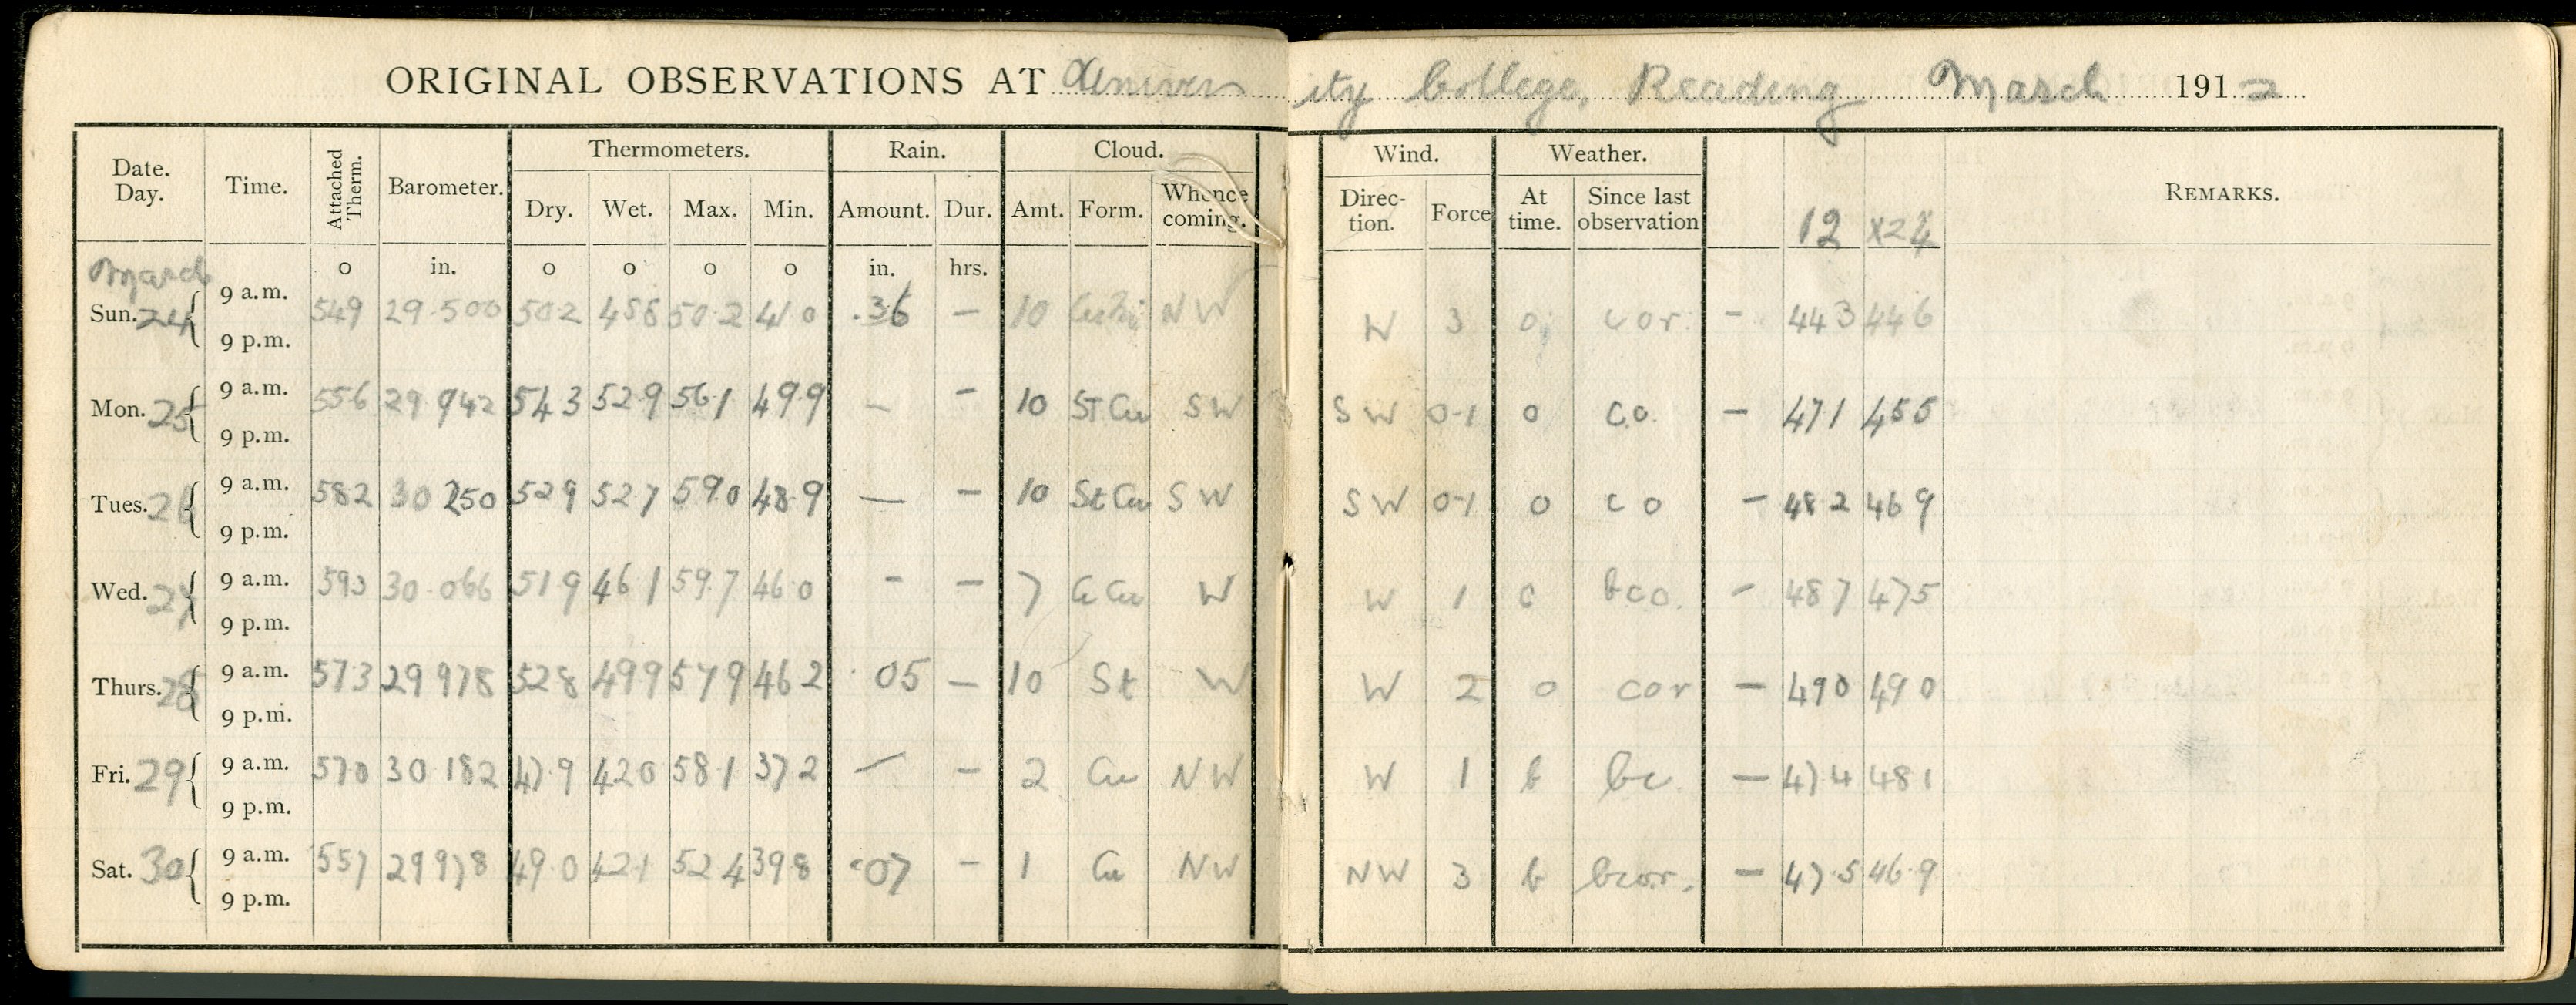 ORIGINAL OBSERVATIONS AT University College, Reading March 1912
Date. Day. Time. Attached Therm. Barometer. Thermometers. Rain. Cloud. Wind. Weather. REMARKS.
Dry. Wet. Max. Min. Amount. Dur. Amt. Form. Whence coming. Direc- tion. Force At time. Since last observation 12
March o in. o o o o in. hrs.
9 a.m.
Sun. 24 549 29.500 50.2 50.2 41 0 .36 – 10 NW W 3 o cor. – 443 446
9 p.m.
9 a.m.
Mon. 25 556 29 942 54 3 52.9 56.1 49.9 — – 10 St Cu SW SW 0-1 o c.o. – 471 455
9 p.m.
9 a.m.
Tues. 26 582 30 250 529 52.7 59.0 48.9 — – 10 St Cu SW SW 0-1 o c o – 48 2 46 9
9 p.m.
9 a.m.
Wed. 27 593 30.066 51 9 46 1 59.7 46.0 - – 7 W W 1 c bco. – 487 475
9 p.m.
9 a.m.
Thurs. 28 573 29 978 528 499 579 46 2 .05 – 10 St W W 2 o cor – 490 490
9 p.m.
9 a.m.
Fri. 29 570 30 182 47.9 420 58.1 37 2 — – 2 Cu NW W 1 b bc. – 474 481
9 p.m.
9 a.m.
Sat. 30 557 29 978 49.0 42.1 52 4 39 8 .07 – 1 Cu NW NW 3 b bcor. – 47.5 46.9
9 p.m.